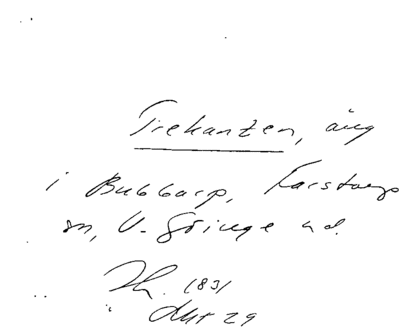 Trekanten, äng
i Bubbarp, Farstorps
sn, V. Göinge hd.
Th. 1831
Akt 29